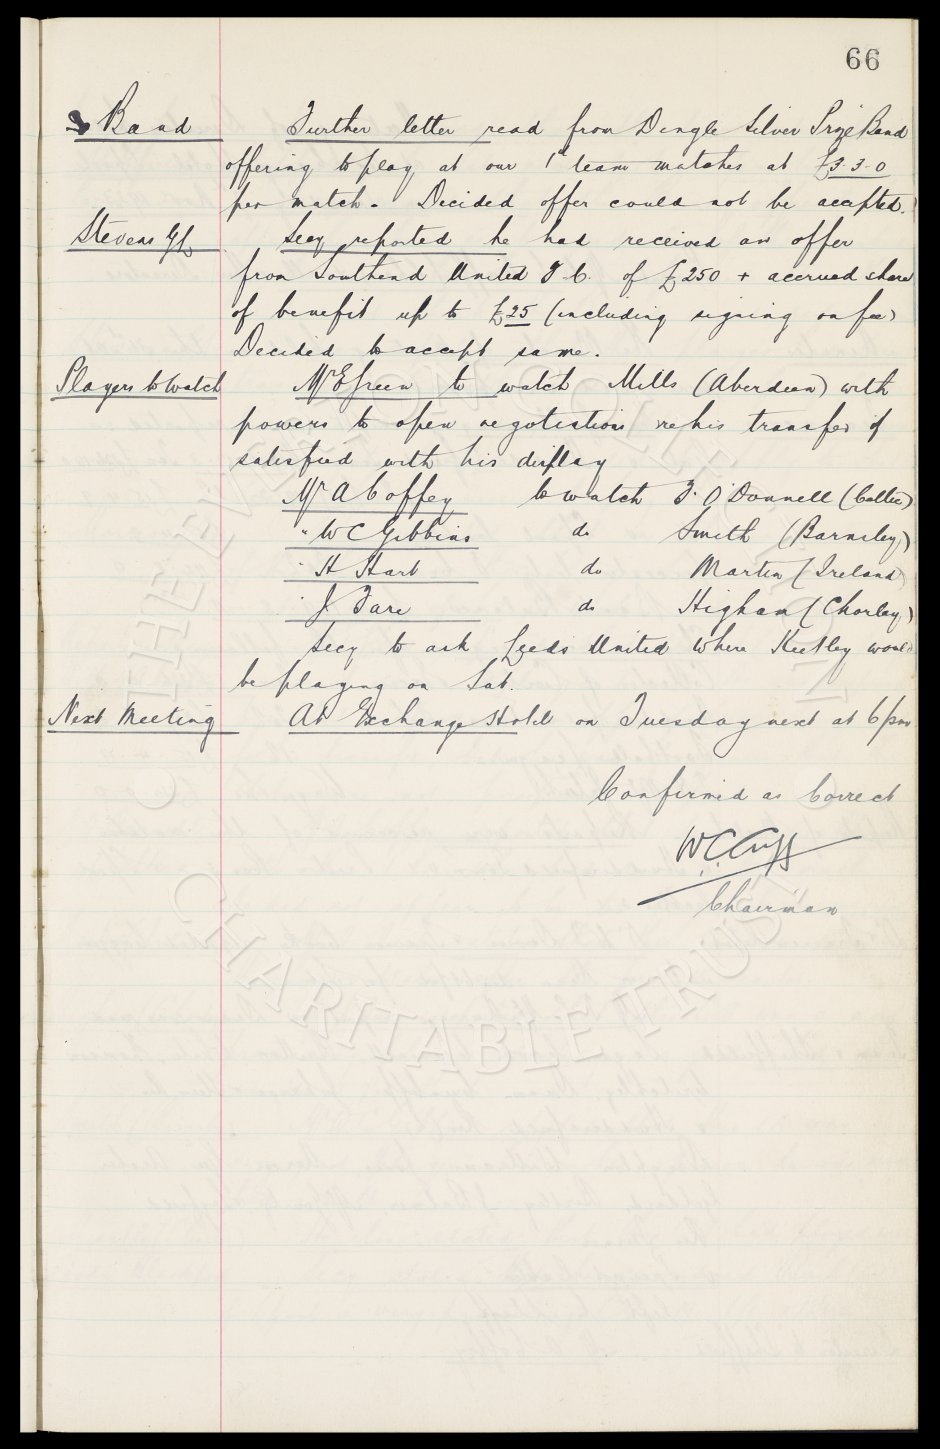 66
Band Further letter read from Dingle Silver Prize Band
offering to play at our 1st team matches at £3-3-0
per match. Decided offer could not be accepted.
Stevens G Secy reported he had received an offer
from Southend United F C. of £250 + accrued share
of benefit up to £25 (including signing on fee)
Decided to accept same.
Players to Watch Mr E Green to watch Mills (Aberdeen) with
powers to open negotiations re his transfer if
satisfied with his display
Mr A Coffey to watch F. O'Donnell (Celtic)
" W C Gibbins do Smith (Barnsley)
" H Hart do Martin (Ireland)
" J Fare do Higham (Chorley)
Secy to ask Leeds United where Keetley would
be playing on Sat.
Next Meeting At Exchange Hotel on Tuesday next at 6 pm
Confirmed as Correct
W C Cuff
Chairman
THE EVERTON COLLECTION
CHARITABLE TRUST